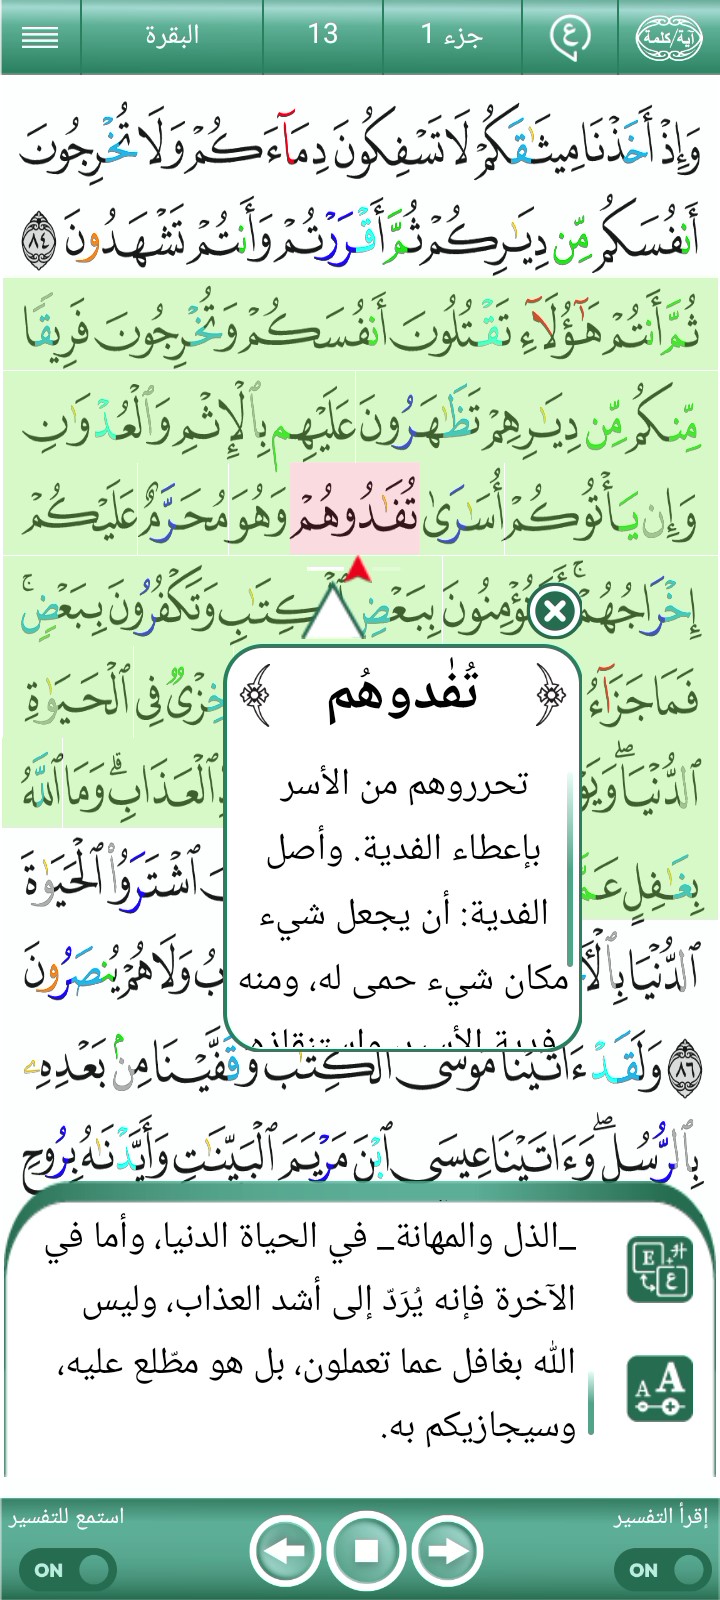 آية/كلمة
ع
جزء 1
13
البقرة
وَإِذْ أَخَذْنَا مِيثَٰقَكُمْ لَا تَسْفِكُونَ دِمَآءَكُمْ وَلَا تُخْرِجُونَ
أَنفُسَكُم مِّن دِيَٰرِكُمْ ثُمَّ أَقْرَرْتُمْ وَأَنتُمْ تَشْهَدُونَ ٨٤
ثُمَّ أَنتُمْ هَٰٓؤُلَآءِ تَقْتُلُونَ أَنفُسَكُمْ وَتُخْرِجُونَ فَرِيقًا
مِّنكُم مِّن دِيَٰرِهِمْ تَظَٰهَرُونَ عَلَيْهِم بِٱلْإِثْمِ وَٱلْعُدْوَٰنِ
وَإِن يَأْتُوكُمْ أُسَٰرَىٰ تُفَٰدُوهُمْ وَهُوَ مُحَرَّمٌ عَلَيْكُمْ
إِخْرَاجُهُمْ ۚ بِبَعْضِ ٱلْكِتَٰبِ وَتَكْفُرُونَ بِبَعْضٍ ۚ
فَمَا جَزَآءُ خِزْىٌ فِى ٱلْحَيَوٰةِ
ٱلدُّنْيَا ۖ ٱلْعَذَابِ ۗ وَمَا ٱللَّهُ
بِغَٰفِلٍ ٱشْتَرَوُا۟ ٱلْحَيَوٰةَ
ٱلدُّنْيَا وَلَا هُمْ يُنصَرُونَ
٨٦ وَلَقَدْ ءَاتَيْنَا مُوسَى ٱلْكِتَٰبَ وَقَفَّيْنَا مِنۢ بَعْدِهِۦ
بِٱلرُّسُلِ ۖ وَءَاتَيْنَا عِيسَى ٱبْنَ مَرْيَمَ ٱلْبَيِّنَٰتِ وَأَيَّدْنَٰهُ بِرُوحِ
تُفَٰدوهُم
تحرروهم من الأسر
بإعطاء الفدية. وأصل
الفدية: أن يجعل شيء
مكان شيء حمى له، ومنه
فدية الأسير واستنقاذه
_الذل والمهانة_ في الحياة الدنيا، وأما في
الآخرة فإنه يُرَدّ إلى أشد العذاب، وليس
الله بغافل عما تعملون، بل هو مطّلع عليه،
وسيجازيكم به.
إقرأ التفسير
استمع للتفسير
ON
ON